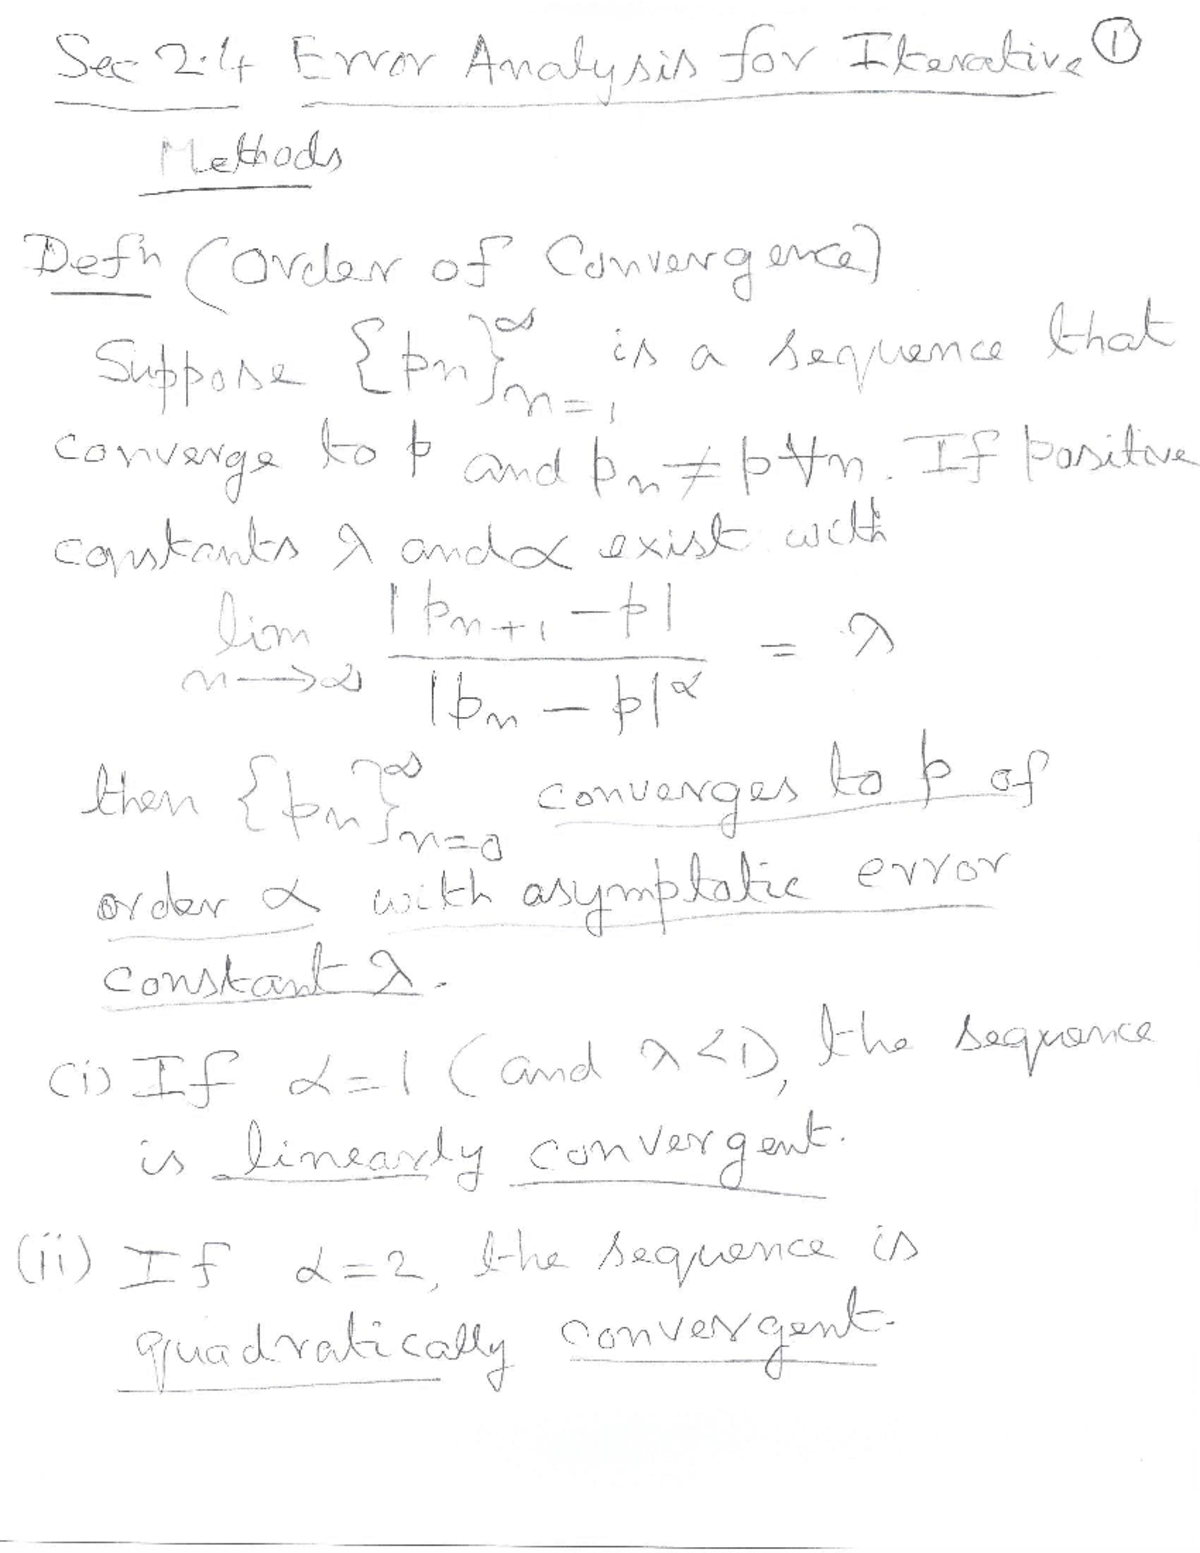 Sec 2.4 Error Analysis for Iterative ①
Methods
Defn (Order of Convergence)
Suppose {pn}∞n=1 is a sequence that
converge to p and pn ≠ p ∀n. If positive
constants λ and α exist with
lim n→∞ |pn+1 − p| / |pn − p|^α = λ
then {pn}∞n=0 converges to p of
order α with asymptotic error
constant λ.
(i) If α=1 (and λ<1), the sequence
is linearly convergent.
(ii) If α=2, the sequence is
quadratically convergent.